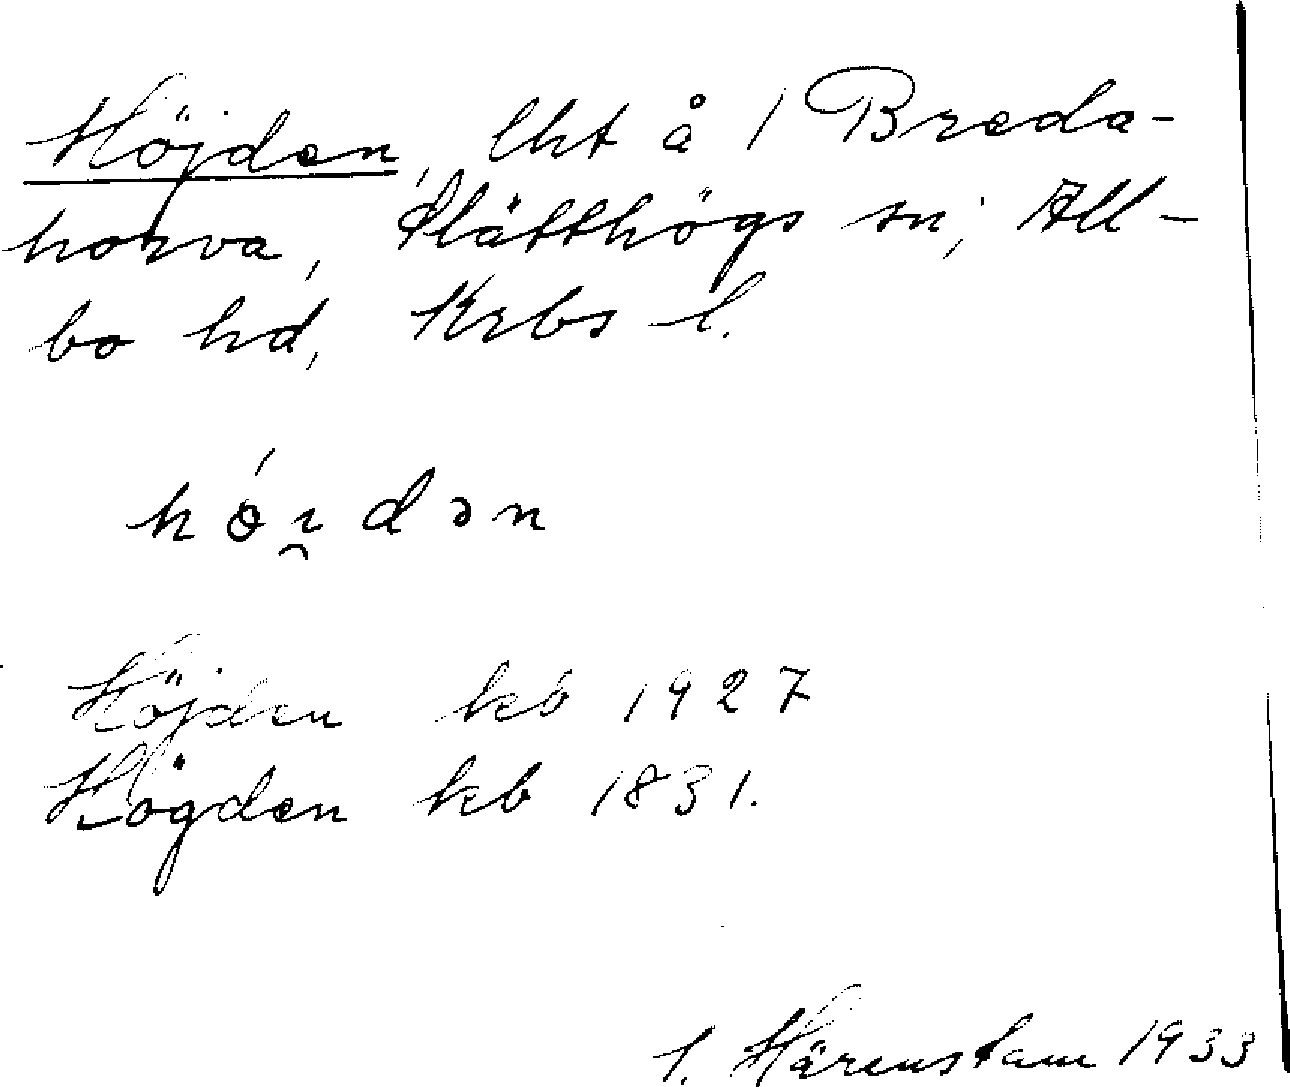 Höjden, lht å 1 Breda-
horva, Slätthögs sn, All-
bo hd, Krbs l.
Höjden kb 1927
Högden kb 1831.
Härenstam 1933